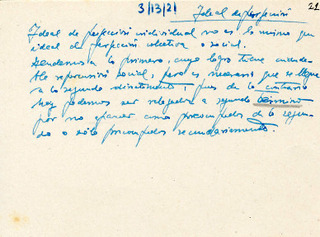 3/13/21
Ideal de perfección 21
Ideal de perfección individual no es lo mismo que
ideal de perfección colectiva o social.
Tendamos a lo primero, cuyo logro tiene
repercusión social, pero es necesario que se llegue
a lo segundo directamente pues de lo contrario
podemos ser relegados a segundo término
por no aparecer como preocupados de lo segun-
do o sólo preocupados secundariamente.